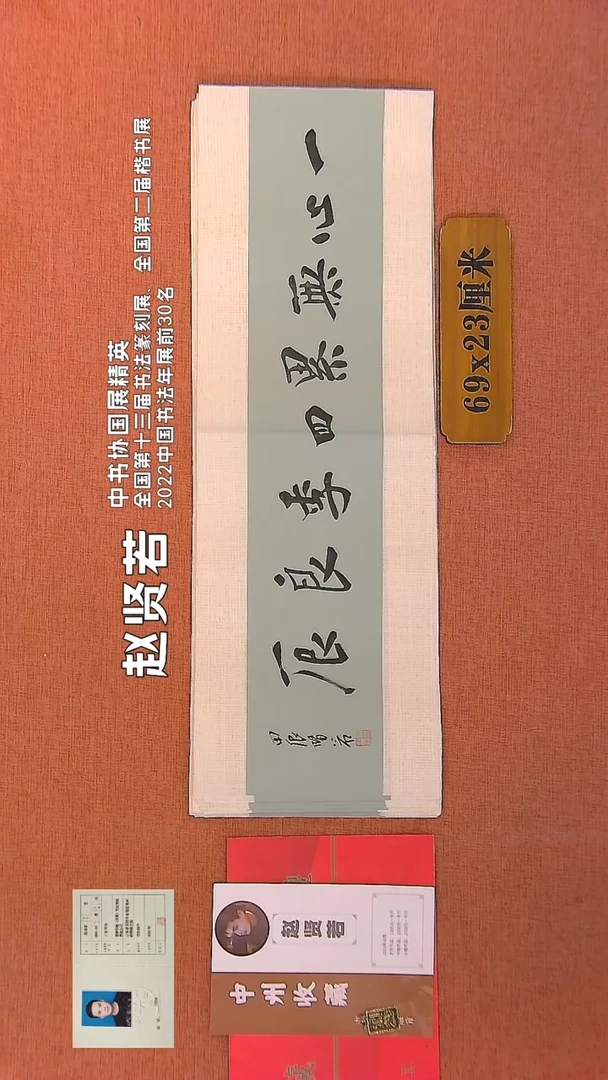 赵贤若
中书协国展精英
全国第十三届书法篆刻展、全国第二届楷书展
2022中国书法年展前30名
一心無累四季良辰
甲辰賢若
69x23厘米
赵贤若
中州收藏